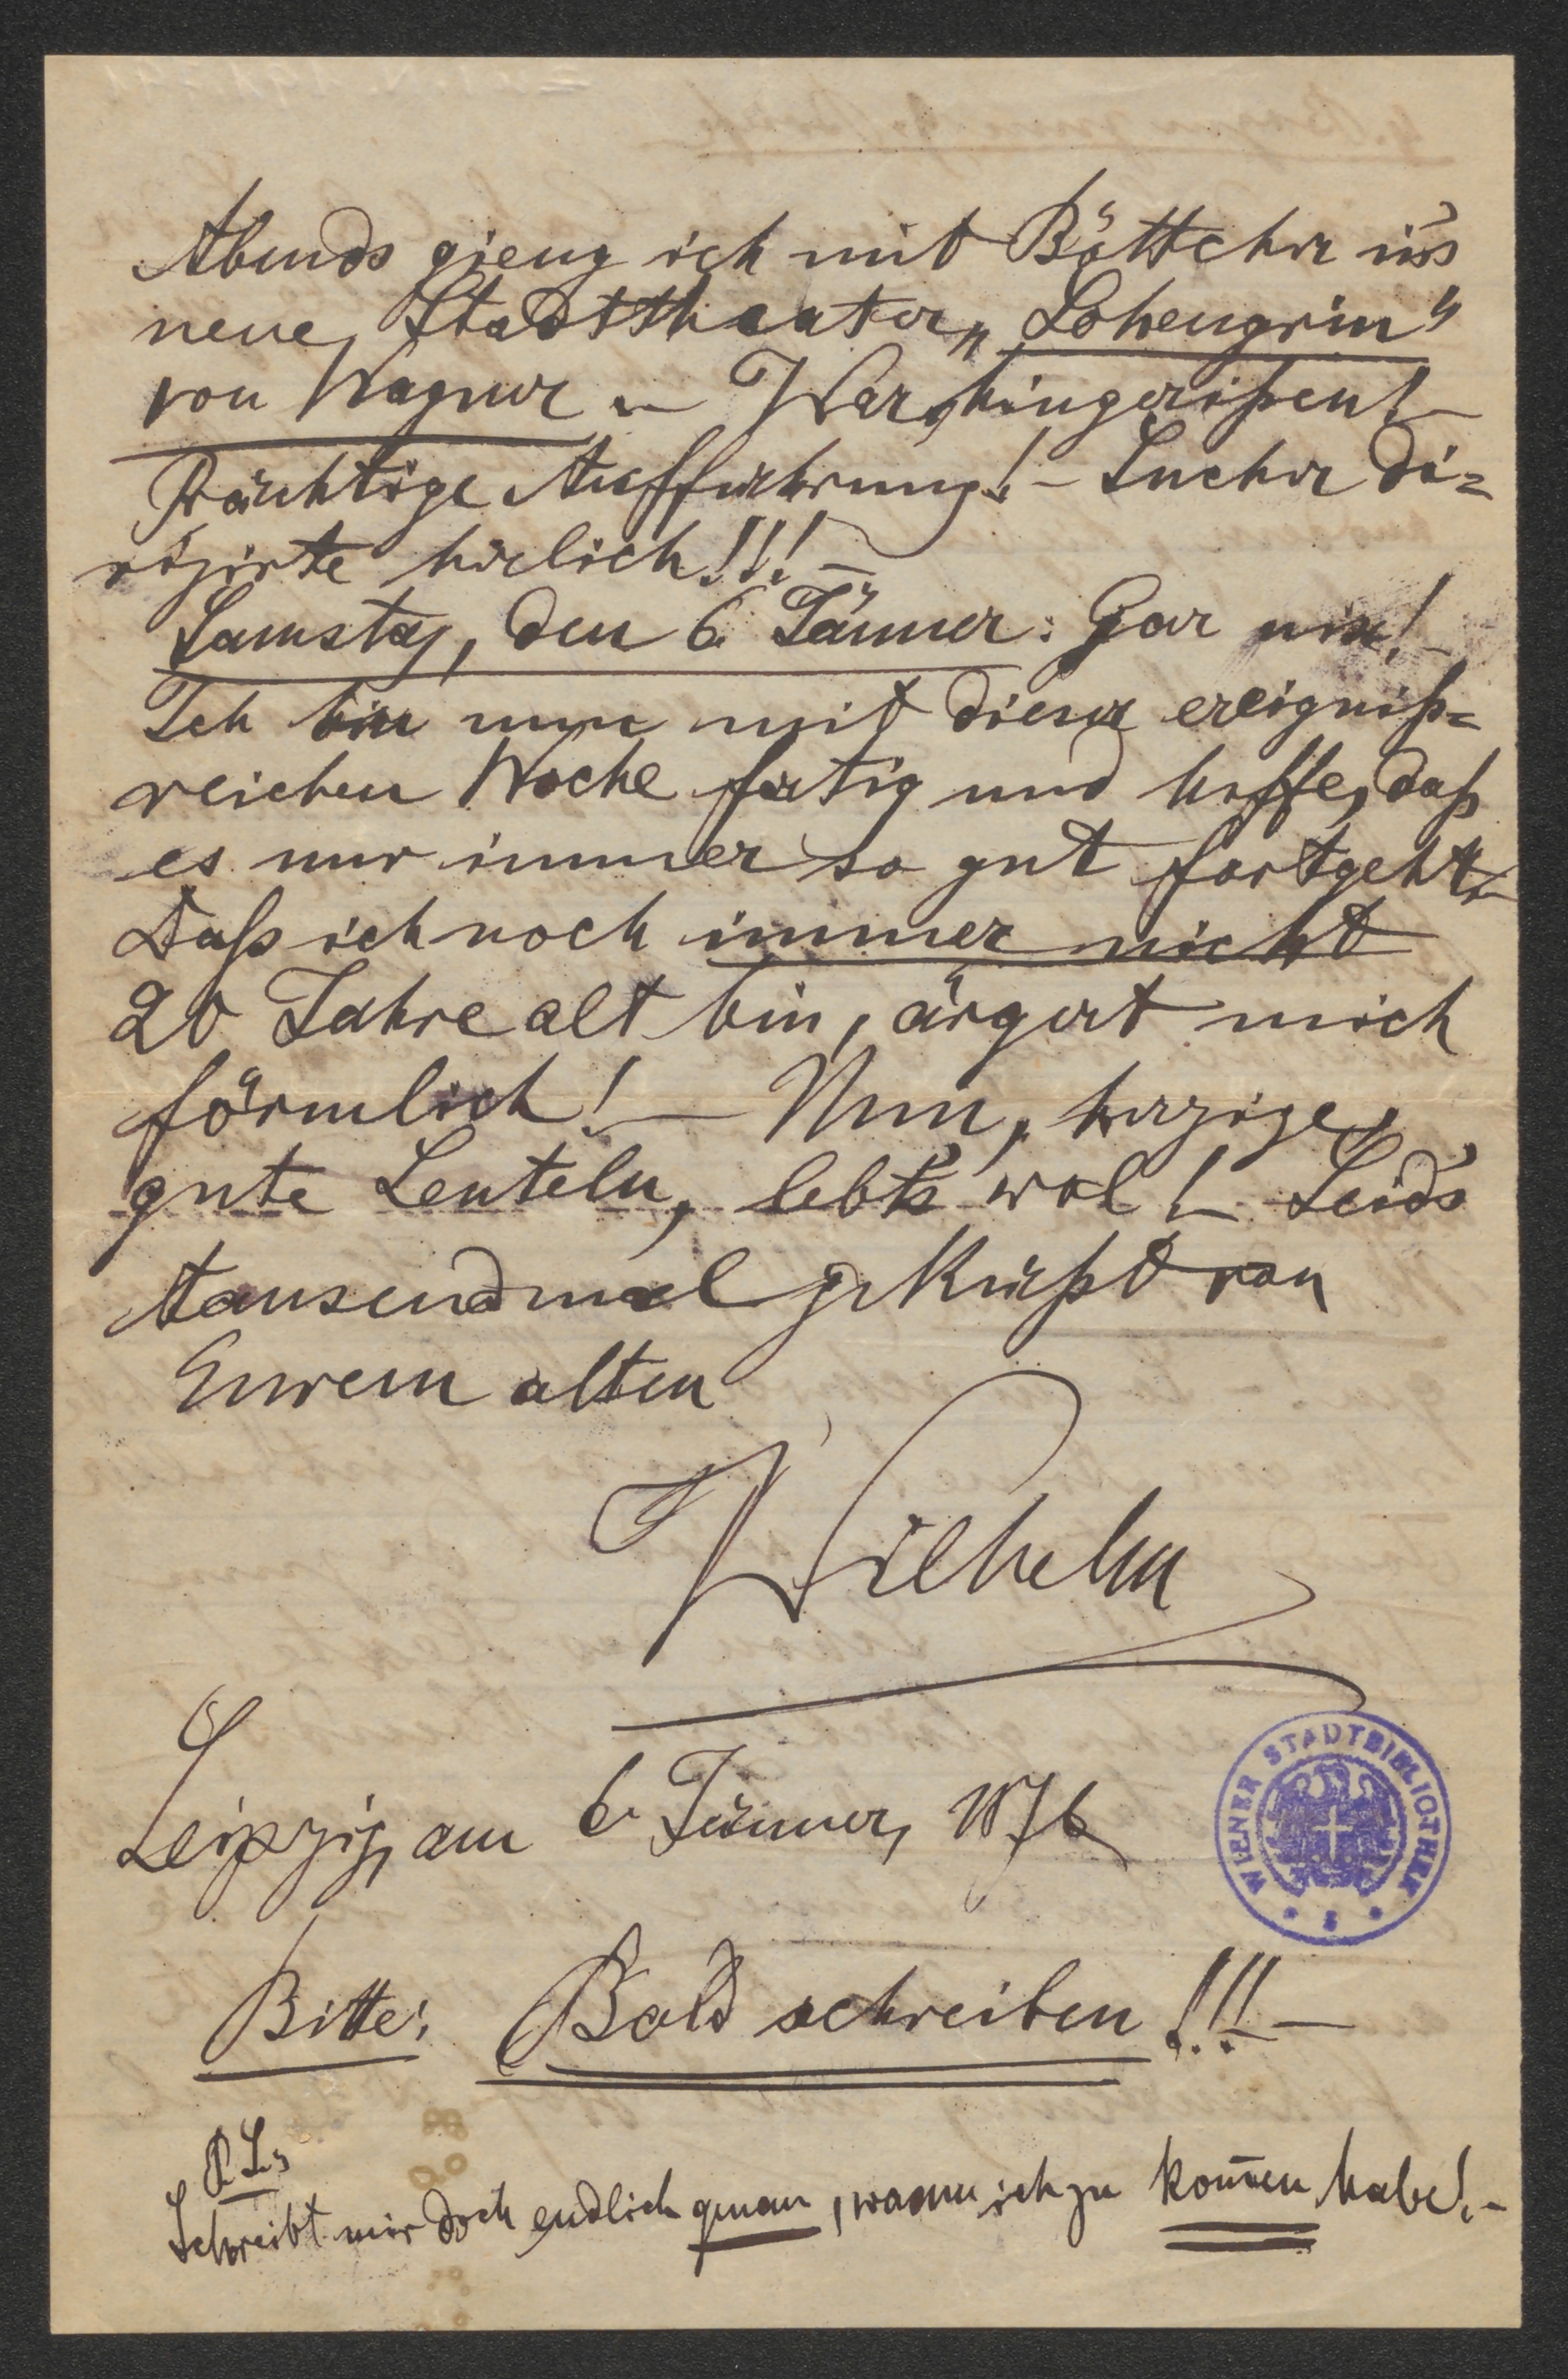 Abends gieng ich mit Böttcher in's
neue Stadttheater „Lohengrin"
von Wagner – War hingerißen! –
Prächtige Aufführung! – Sucher di=
rigirte herlich!!! –
Samstag, den 6. Jänner: Gar nix! –
Ich bin nun mit dieser ereigniß=
reichen Woche fertig und hoffe, daß
es nur immer so gut fortgeht. –
Daß ich noch immer nicht
20 Jahre alt bin, ärgert mich
förmlich! – Nun, herzige,
gute Leuteln, lebt's wol! – Seid's
tausendmal geküßt von
Eurem alten
Wilhelm
Leipzig, am 6. Jänner, 1876
WIENER STADTBIBLIOTHEK
Bitte: Bald schreiben!!! –
P.S.
Schreibt mir doch endlich genau, wann ich zu kom̄en habe! –